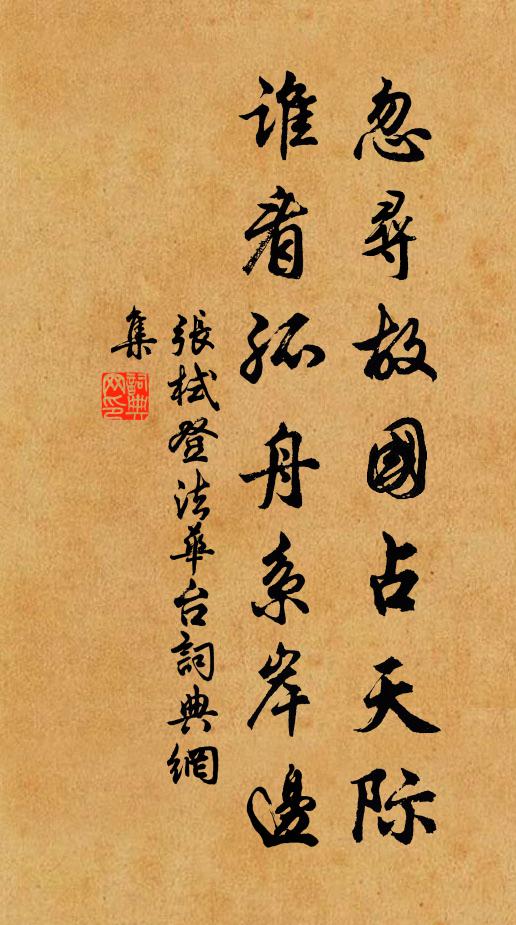 忽尋故國占天际
谁看孤舟系岸邊
張栻登法華台詞典網
集
詞典
网印